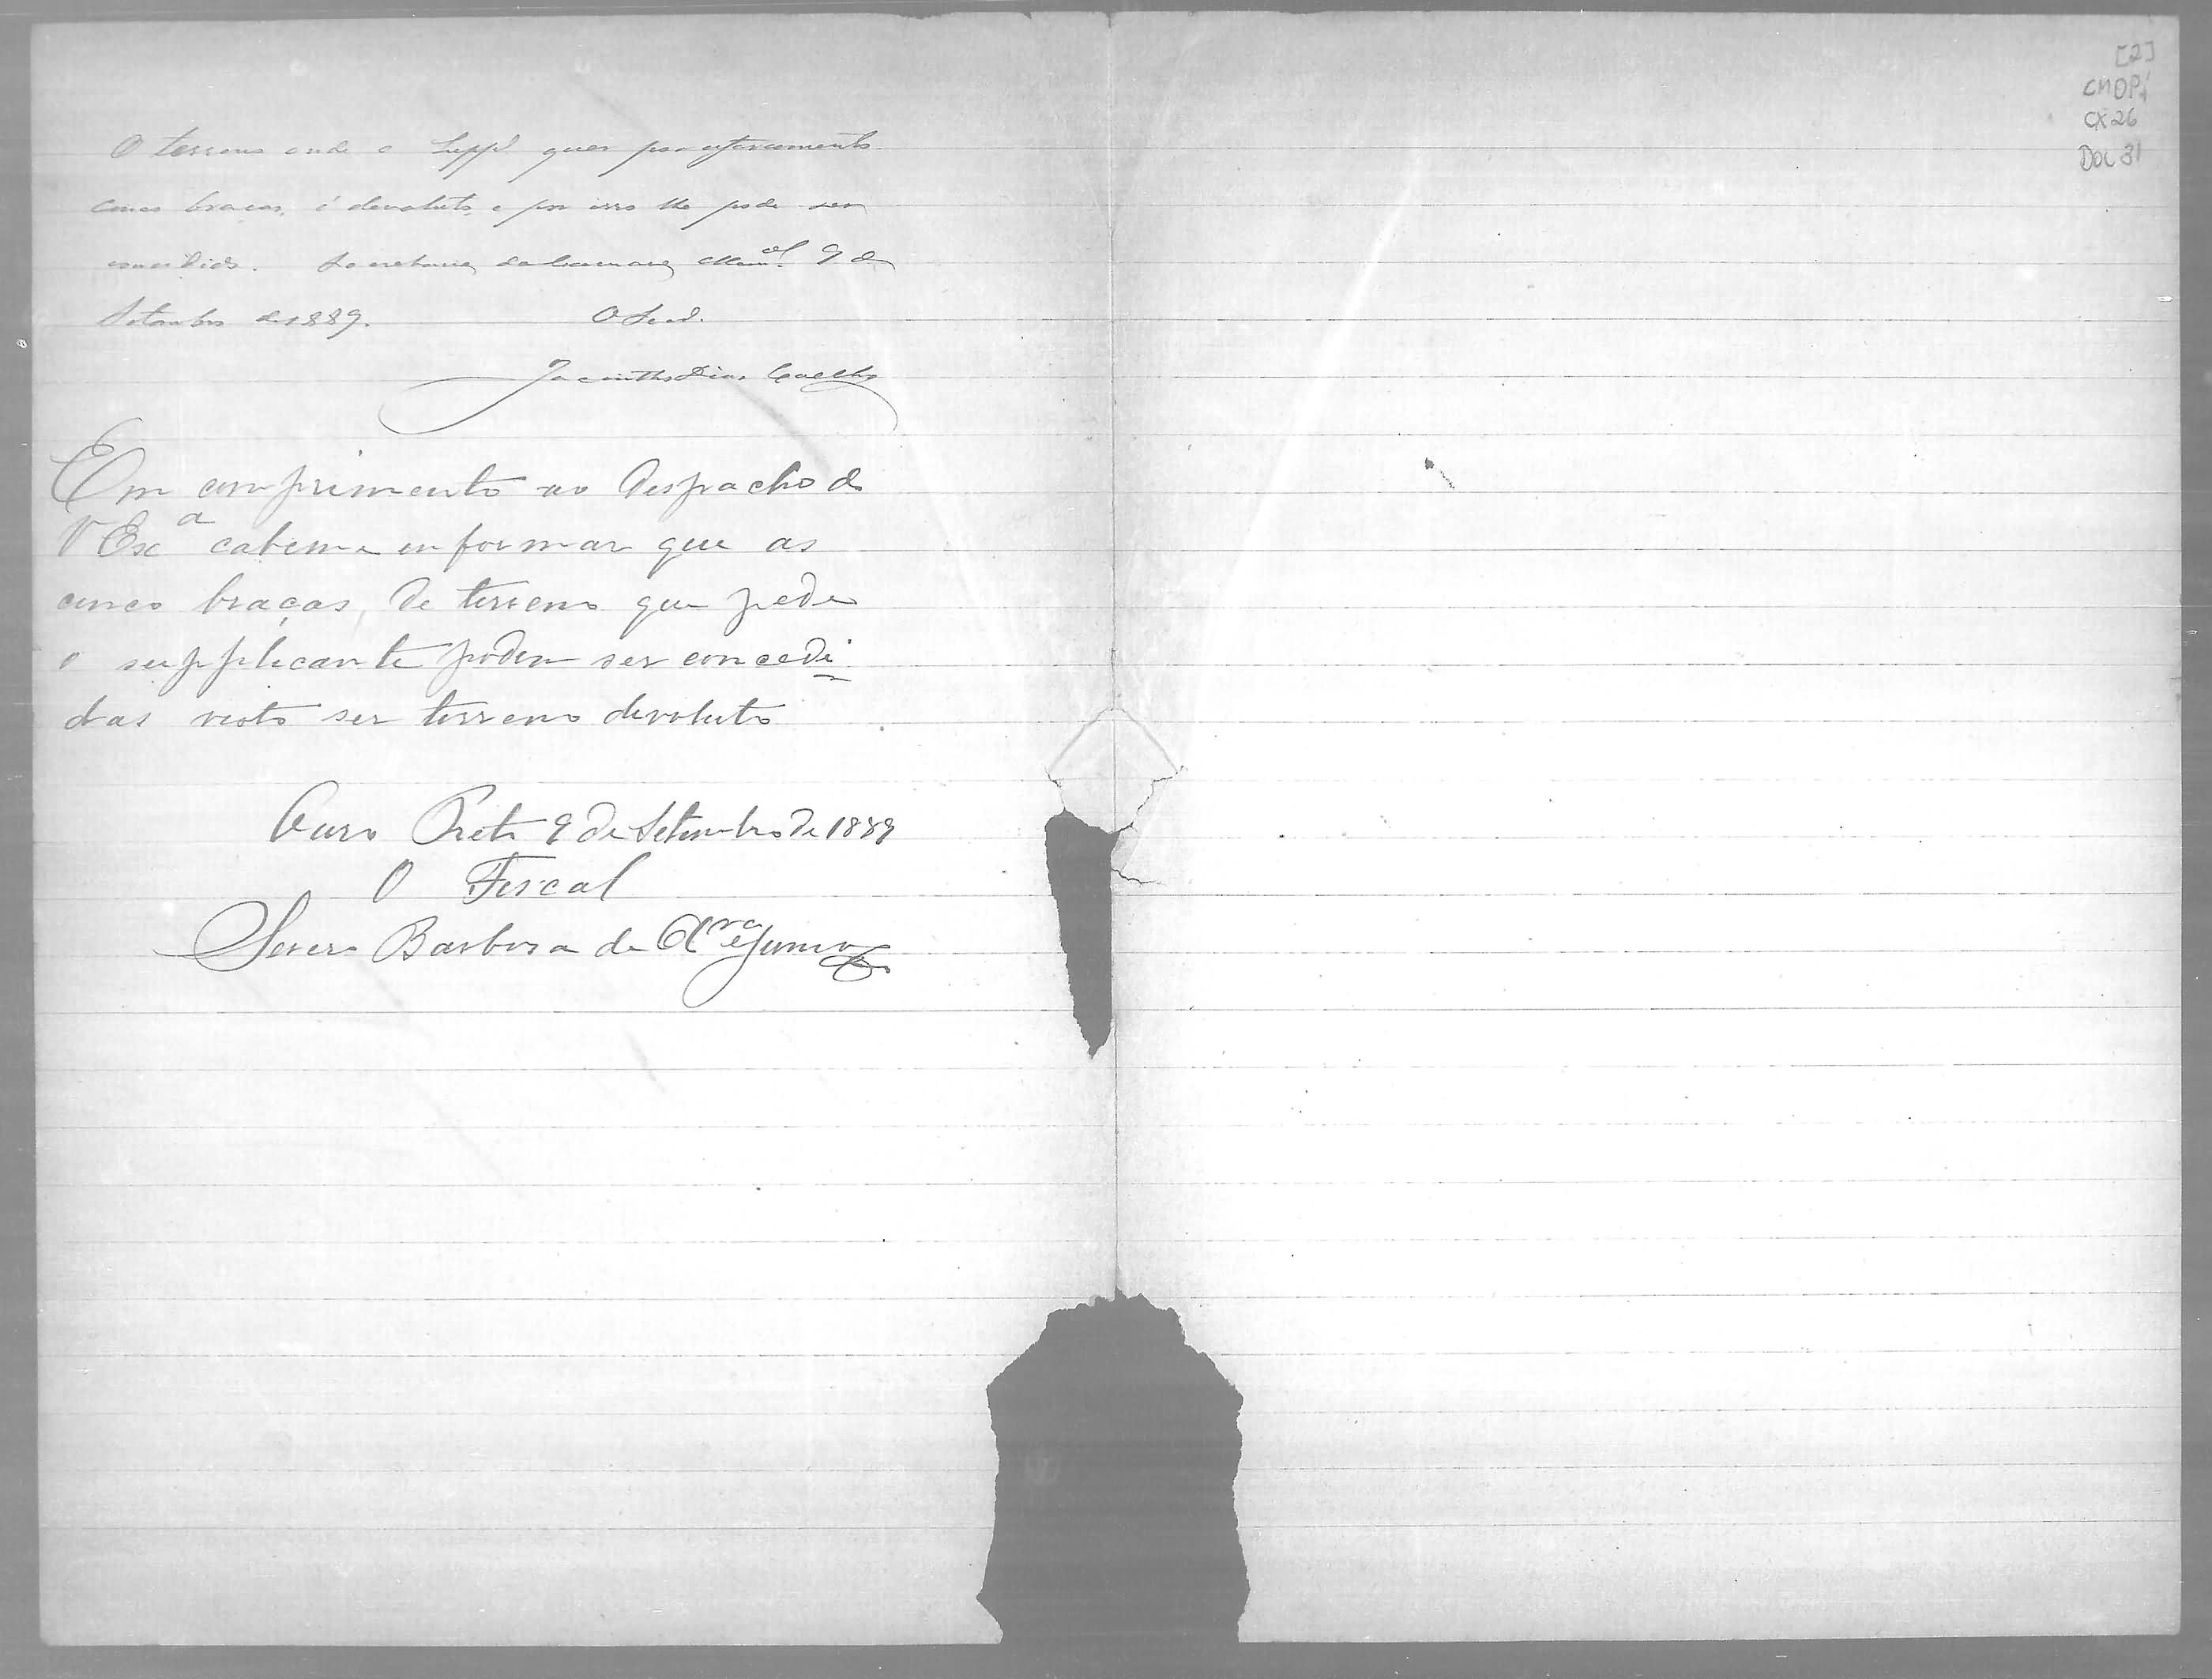 O terreno onde o Suppe quer por aforamento
cinco braças, é devoluto, e por isso lhe pode ser
concedido. Secretaria da Camara Mam.al 9 de
Setembro de 1889. O Secr.
Jacintho Dias Coelho
Em comprimento ao despacho de
V Exa cabeme enformar que as
cinco braças, de terreno que pede
o supplicante podem ser concedi
das visto ser terreno devoluto
Ouro Preto 9 de Setembro de 1889
O Fiscal
Severo Barbosa de Olra Junior
[2]
CMOP
CX 26
DOC 31